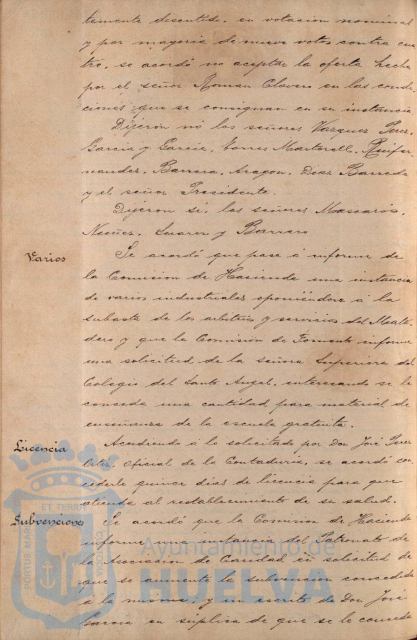 temente discutido, en votacion nominal
y por mayoria de nueve votos contra cua-
tro, se acordó no aceptar la oferta hecha
por el señor Roman Clavero en las condi-
ciones que se consignan en su instancia
Dijeron nó los señores Vazquez Perez,
García y García, Torres Martorell, Ruifer-
nandez, Barrera, Aragon, Diaz Barreda
y el señor Presidente.
Dijeron si, los señores Mascarós,
Nuñez, Suarez y Borrero
Varios
Se acordó que pase á informe de
la Comision de Hacienda una instancia
de varios industriales oponiéndose á la
subasta de los arbitrios y servicios del Mata-
dero y que la Comision de Fomento informe
una solicitud de la señora Superiora del
Colegio del Santo Angel, interesando se le
conceda una cantidad para material de
enseñanza de la escuela gratuita.
Licencia
Accediendo á lo solicitado por Don José Perez
oficial de la Contaduría, se acordó con-
cederle quince dias de licencia para que
atienda al restablecimiento de su salud.
Subvenciones
Se acordó que la Comision de Hacienda
informe una instancia del Patronato de
la Asociacion de Caridad en solicitud de
que se aumente la subvencion concedida
á la misma, y un escrito de Don José
Garcia en suplica de que se le conceda
PORTUS MARIS ET TERRAE
Ayuntamiento de
HUELVA